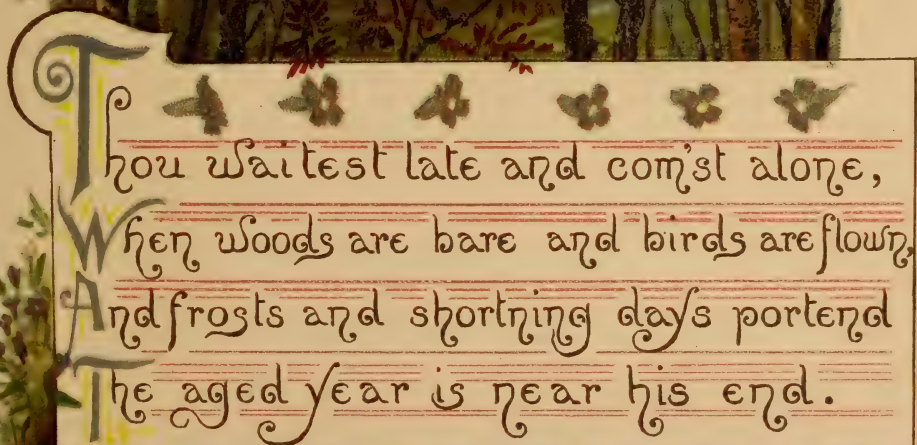 Thou waitest late and com'st alone,
When woods are bare and birds are flown,
And frosts and shortning days portend
The aged year is near his end.